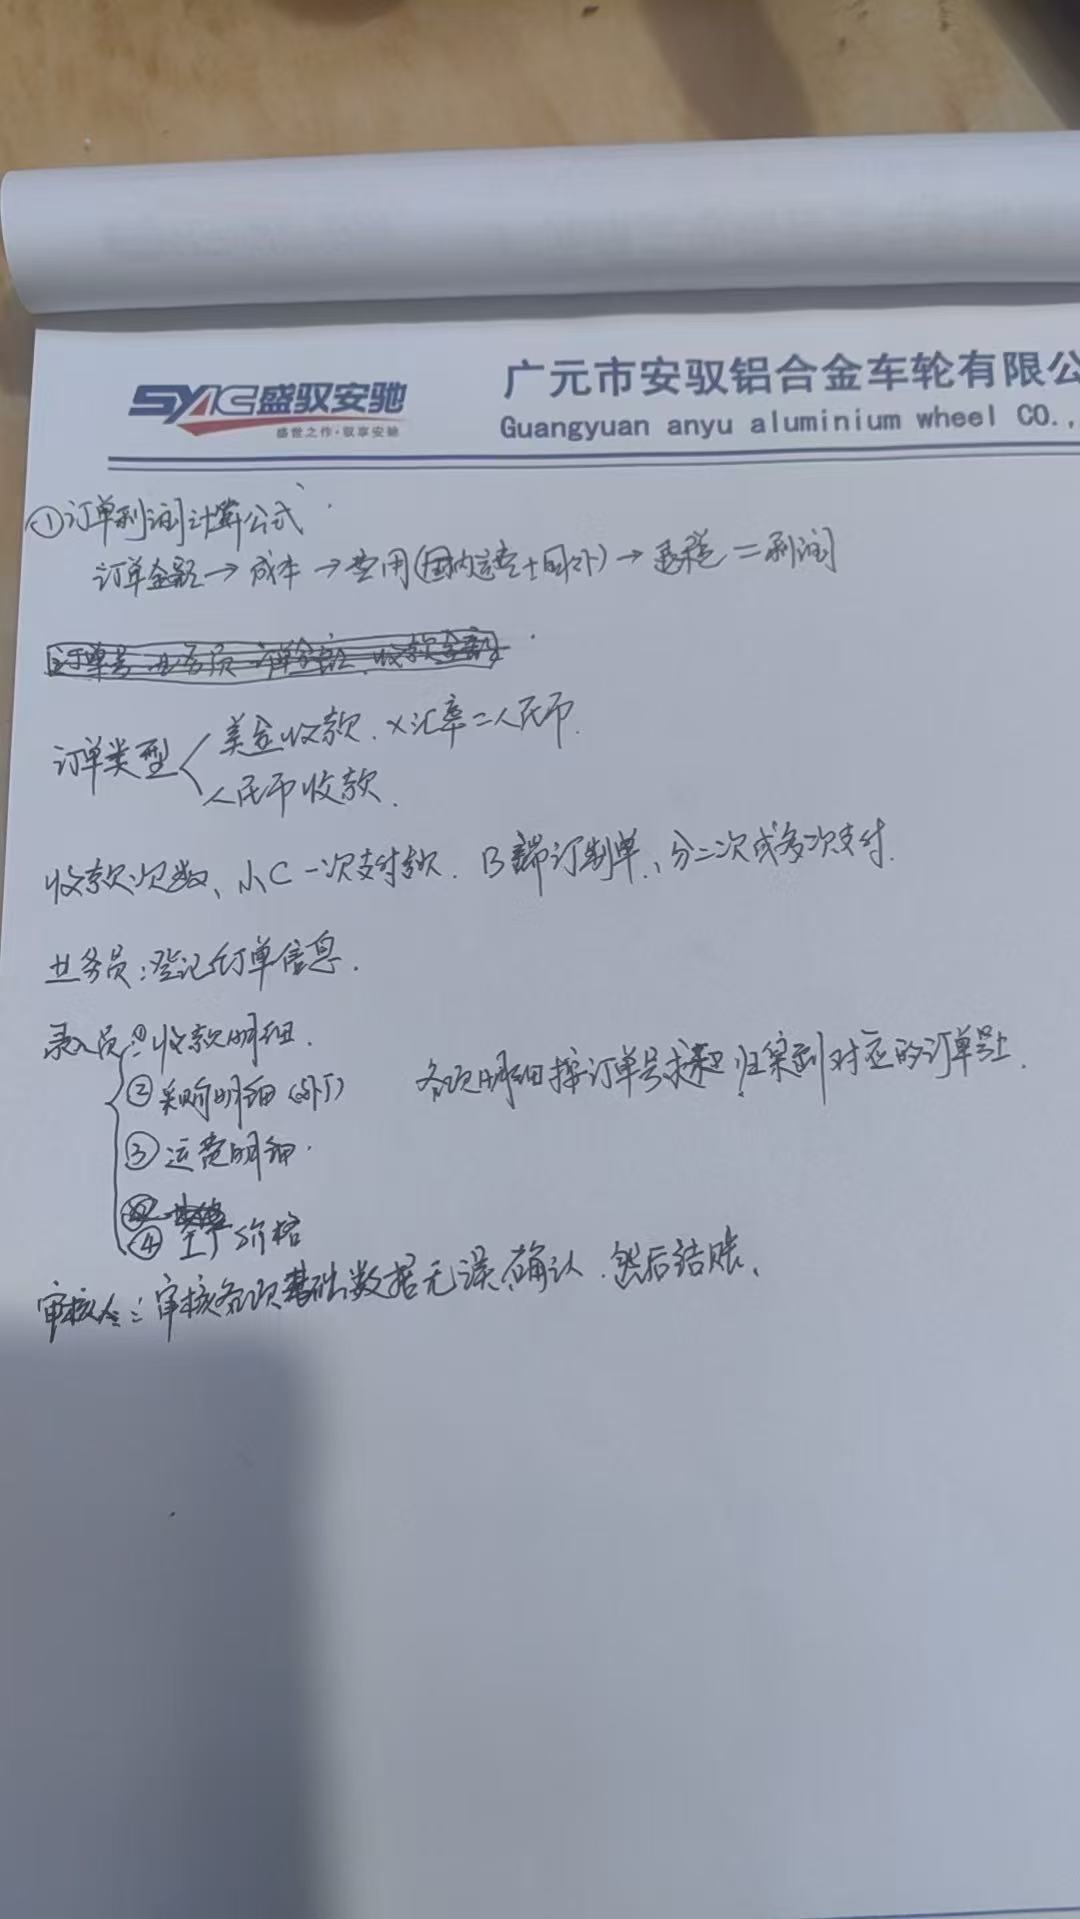 SYAC盛驭安驰
盛世之作·驭享安驰
广元市安驭铝合金车轮有限公
Guangyuan anyu aluminium wheel CO.,
①订单利润计算公式
订单金额→成本→费用(国内运费+国外)→退税=利润
订单号 业务员 订单金额 收款金额
订单类型 美金收款.×汇率=人民币.
人民币收款.
收款次数、小C一次支付款.B端订制单、分二次或多次支付.
业务员:登记订单信息.
录入员:①收款明细.
②采购明细(外厂)
各项明细按订单号 归集到对应的订单号上.
③运费明细.
④生产价格
审核人:审核各项基础数据无误确认.然后结账、